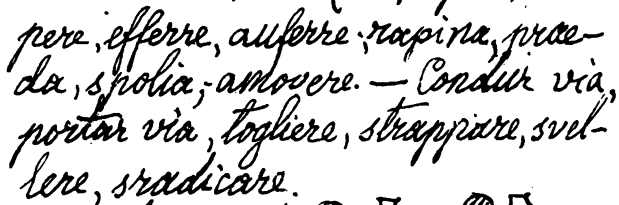 pere, efferre, auferre; rapina, prae-
da, spolia; amovere. — Condur via,
portar via, togliere, strappare, svel-
lere, sradicare.